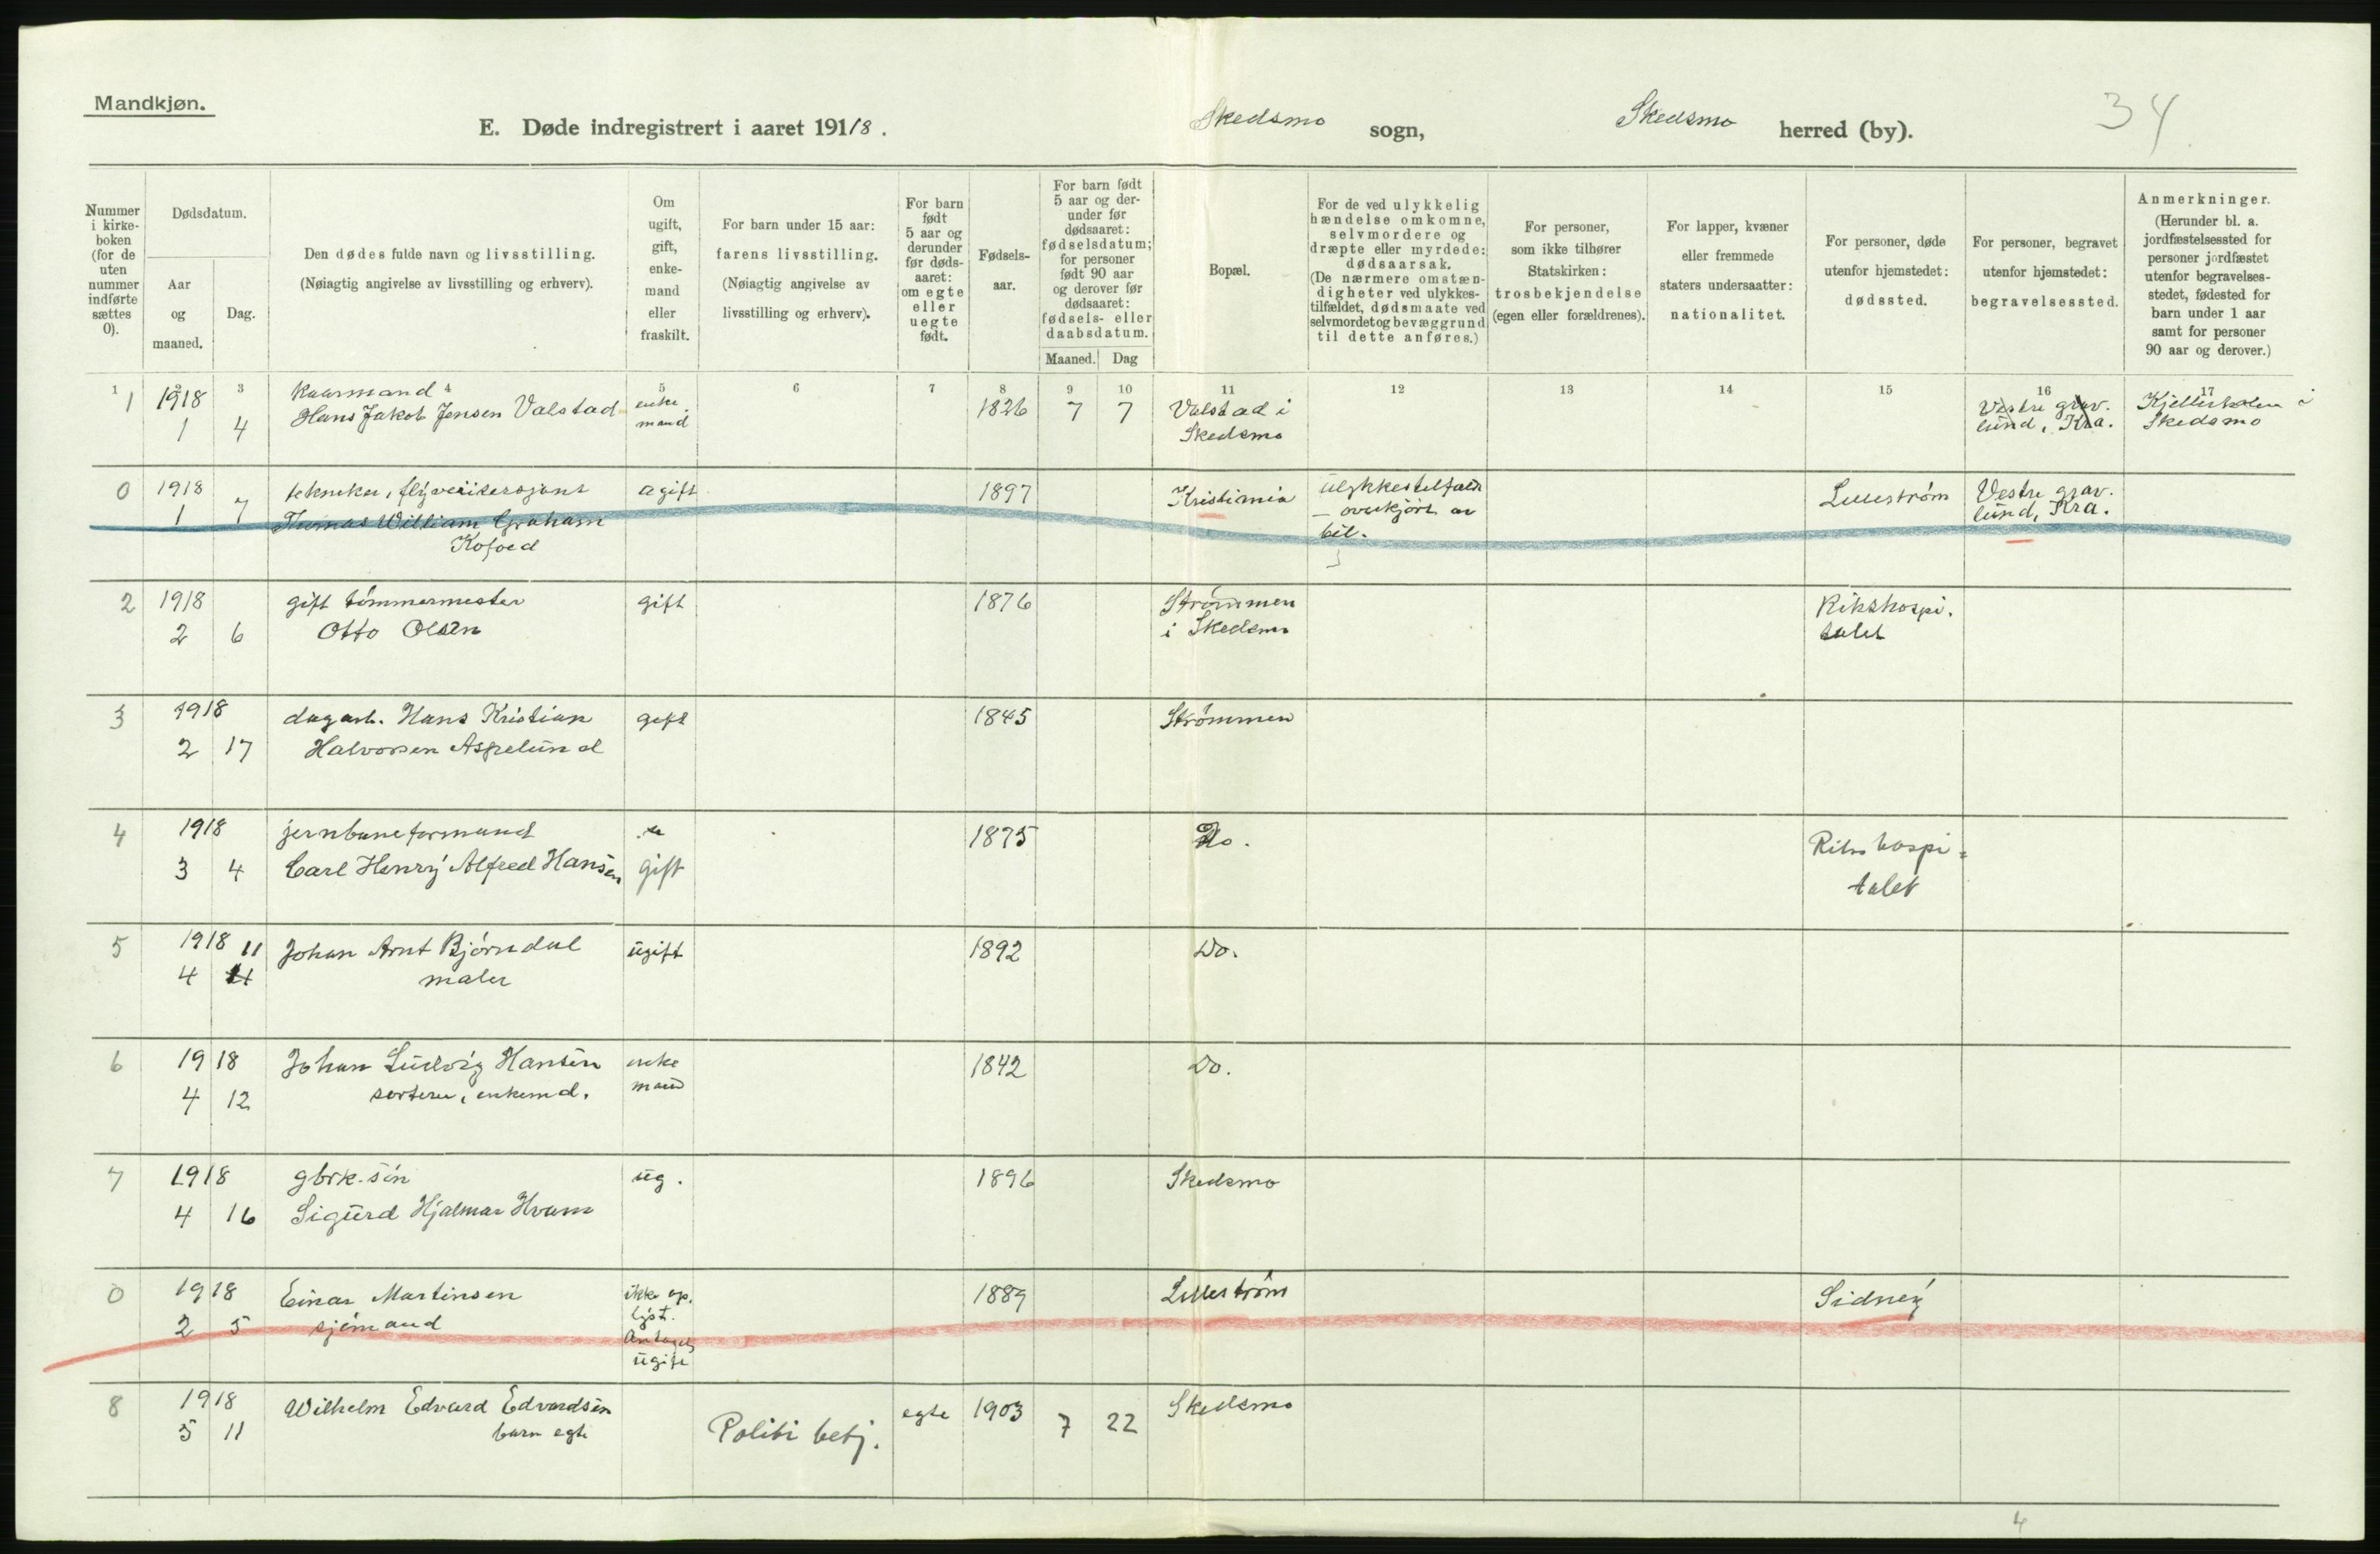 Mandkjøn.
E. Døde indregistrert i aaret 1918.
Skedsmo sogn, Skedsmo herred (by).
34
Nummer i kirkeboken (for de uten nummer indførte sættes 0).
Dødsdatum.
Aar og maaned.
Dag.
Den dødes fulde navn og livsstilling.
(Nøiagtig angivelse av livsstilling og erhverv).
Om ugift, gift, enkemand eller fraskilt.
For barn under 15 aar:
farens livsstilling.
(Nøiagtig angivelse av livsstilling og erhverv).
For barn født 5 aar og derunder før dødsaaret: om egte eller uegte født.
Fødselsaar.
For barn født 5 aar og derunder før dødsaaret: fødselsdatum; for personer født 90 aar og derover før dødsaaret: fødsels- eller daabsdatum.
Maaned. Dag
Bopæl.
For de ved ulykkelig hændelse omkomne, selvmordere og dræpte eller myrdede: dødsaarsak.
(De nærmere omstændigheter ved ulykkestilfældet, dødsmaate ved selvmordet og bevæggrund til dette anføres.)
For personer, som ikke tilhører Statskirken: trosbekjendelse (egen eller forældrenes).
For lapper, kvæner eller fremmede staters undersaatter: nationalitet.
For personer, døde utenfor hjemstedet: dødssted.
For personer, begravet utenfor hjemstedet: begravelsessted.
Anmerkninger.
(Herunder bl. a. jordfæstelsessted for personer jordfæstet utenfor begravelsesstedet, fødested for barn under 1 aar samt for personer 90 aar og derover.)
1 2 3 4 5 6 7 8 9 10 11 12 13 14 15 16 17
1 1918 kaarmand enke 1826 7 7 Valstad i Vestre grav. i
1 4 Hans Jakob Jensen Valstad mand Skedsmo lund, Kra. Skedsmo
0 1918 ugift 1897 Kristiania Ulykkestilfælde Lillestrøm Vestre grav.
1 7 Thomas William Graham — overkjørt av lund, Kra.
Kofoed bil.
2 1918 gift tømmermester gift 1876 Strømmen Rikshospi.
2 6 Otto Olsen i Skedsmo talet
3 1918 dagarb. Hans Kristian gift 1845 Strømmen
2 17 Halvorsen Aspelund
4 1918 jernbaneformand 1875 Do. Rikshospi=
3 4 Carl Henry Alfred Hansen gift talet
5 1918 11 Johan Arnt Bjørndal ugift 1892 Do.
4 maler
6 1918 Johan Ludvig Hansen enke 1842 Do.
4 12 sorterer, enkemd. mand
7 1918 gbrk. søn ug. 1896 Skedsmo
4 16 Sigurd Hjalmar Hvam
0 1918 Einar Martinsen ikke op. 1889 Lillestrøm Sidney
2 5 sjømand lyst.
Antagel.
ugift
8 1918 Wilhelm Edvard Edvardsen egte 1903 7 22 Skedsmo
5 11 barn egte Politi betj.
4